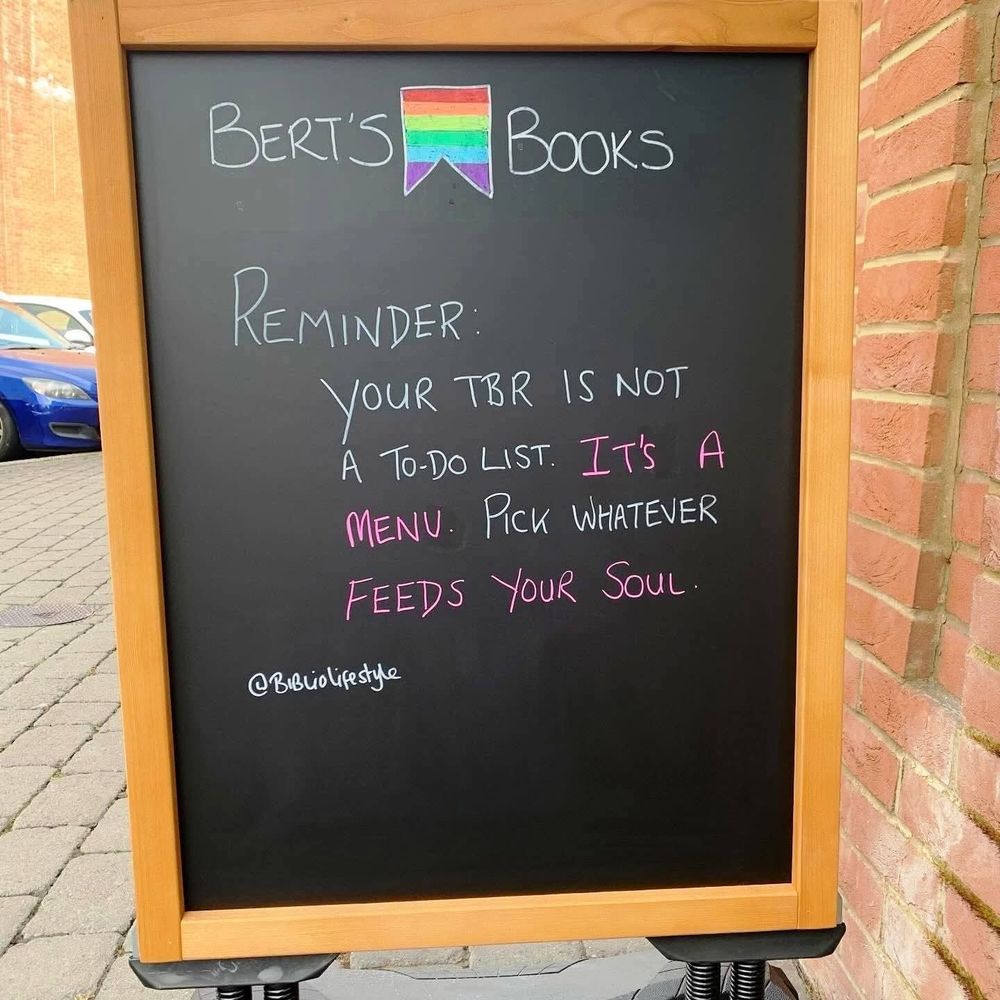 BERT'S BOOKS
REMINDER:
YOUR TBR IS NOT
A TO-DO LIST. IT'S A
MENU. PICK WHATEVER
FEEDS YOUR SOUL.
@BIBLIOlifestyle